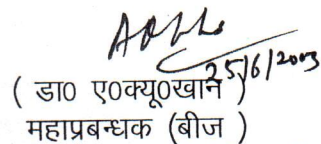 25/6/2003
( डा0 ए0क्यू0खान )
महाप्रबन्धक (बीज )